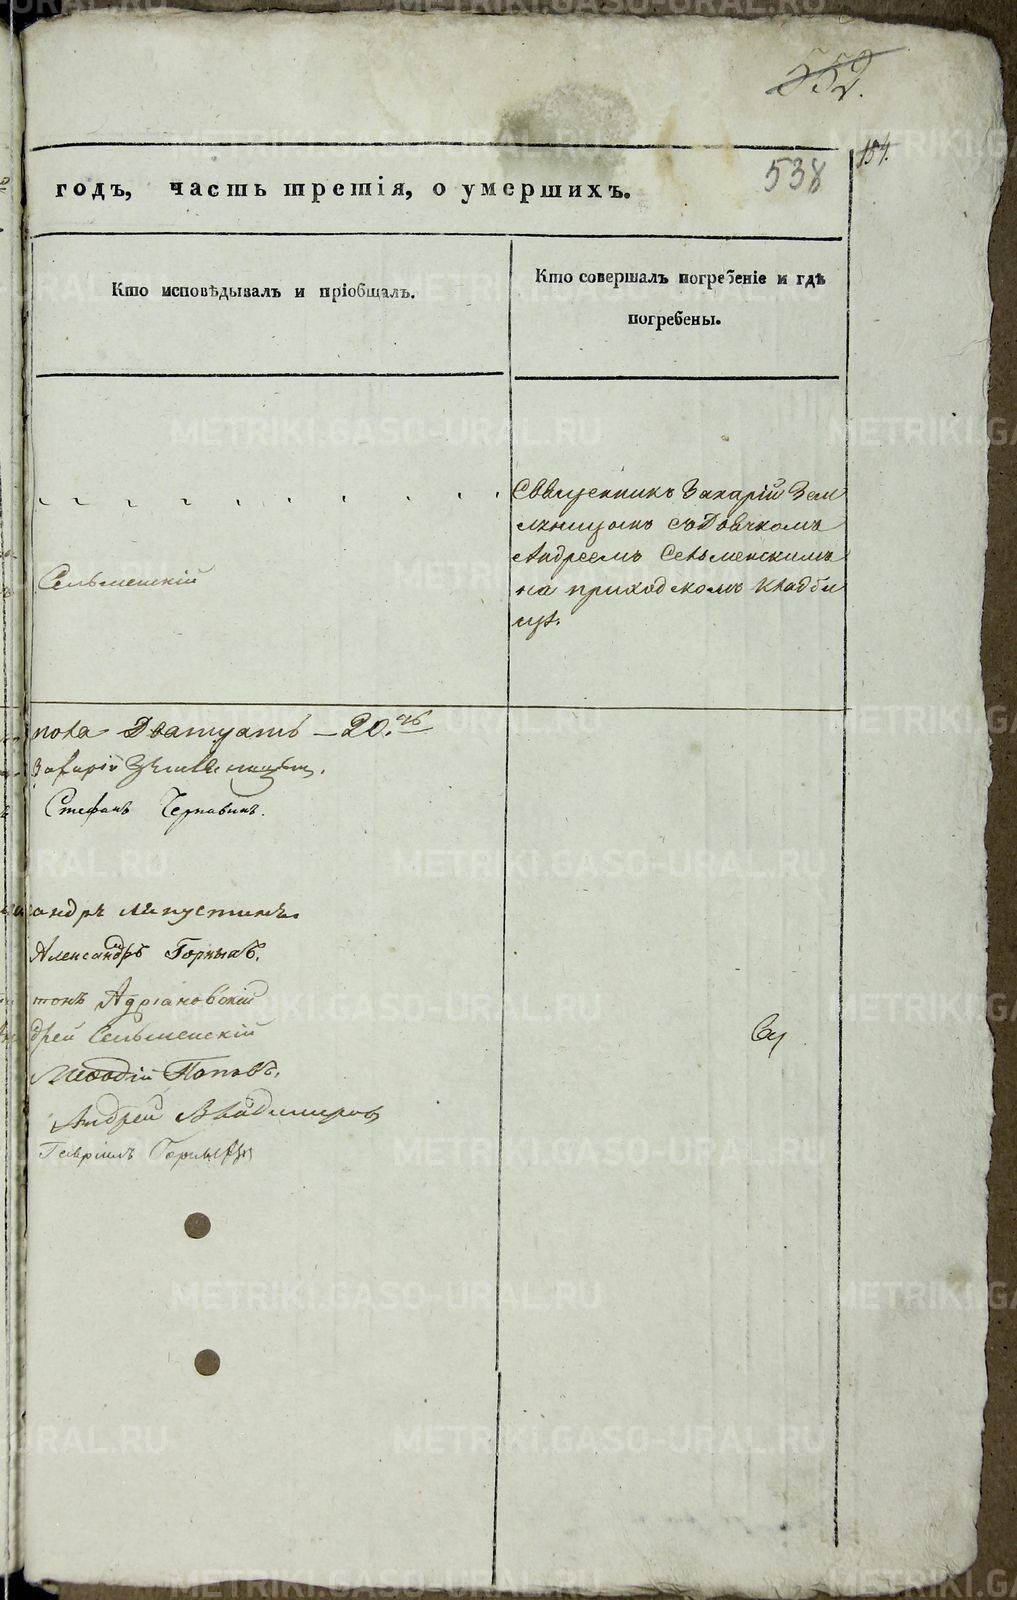 552.
154.
538
годъ, часть третія, о умершихъ.
Кто исповѣдывалъ и пріобщалъ.
Кто совершалъ погребеніе и гдѣ
погребены.
Священникъ Захарій Зем
ляницынъ съ Дьячкомъ
Андреемъ Сельменскимъ
на приходскомъ кладби
щѣ.
Сельменскій
пола Дватцать — 20.ть
Захарій Земляницын.
Стефанъ Чернавинъ.
андръ Лапустинъ.
Александръ Горныхъ.
тонъ Адріановскій
дрей Сельменскій
Меѳодій Поповъ.
Андрей Владимиров
Гавріилъ
METRIKI.GASO-URAL.RU